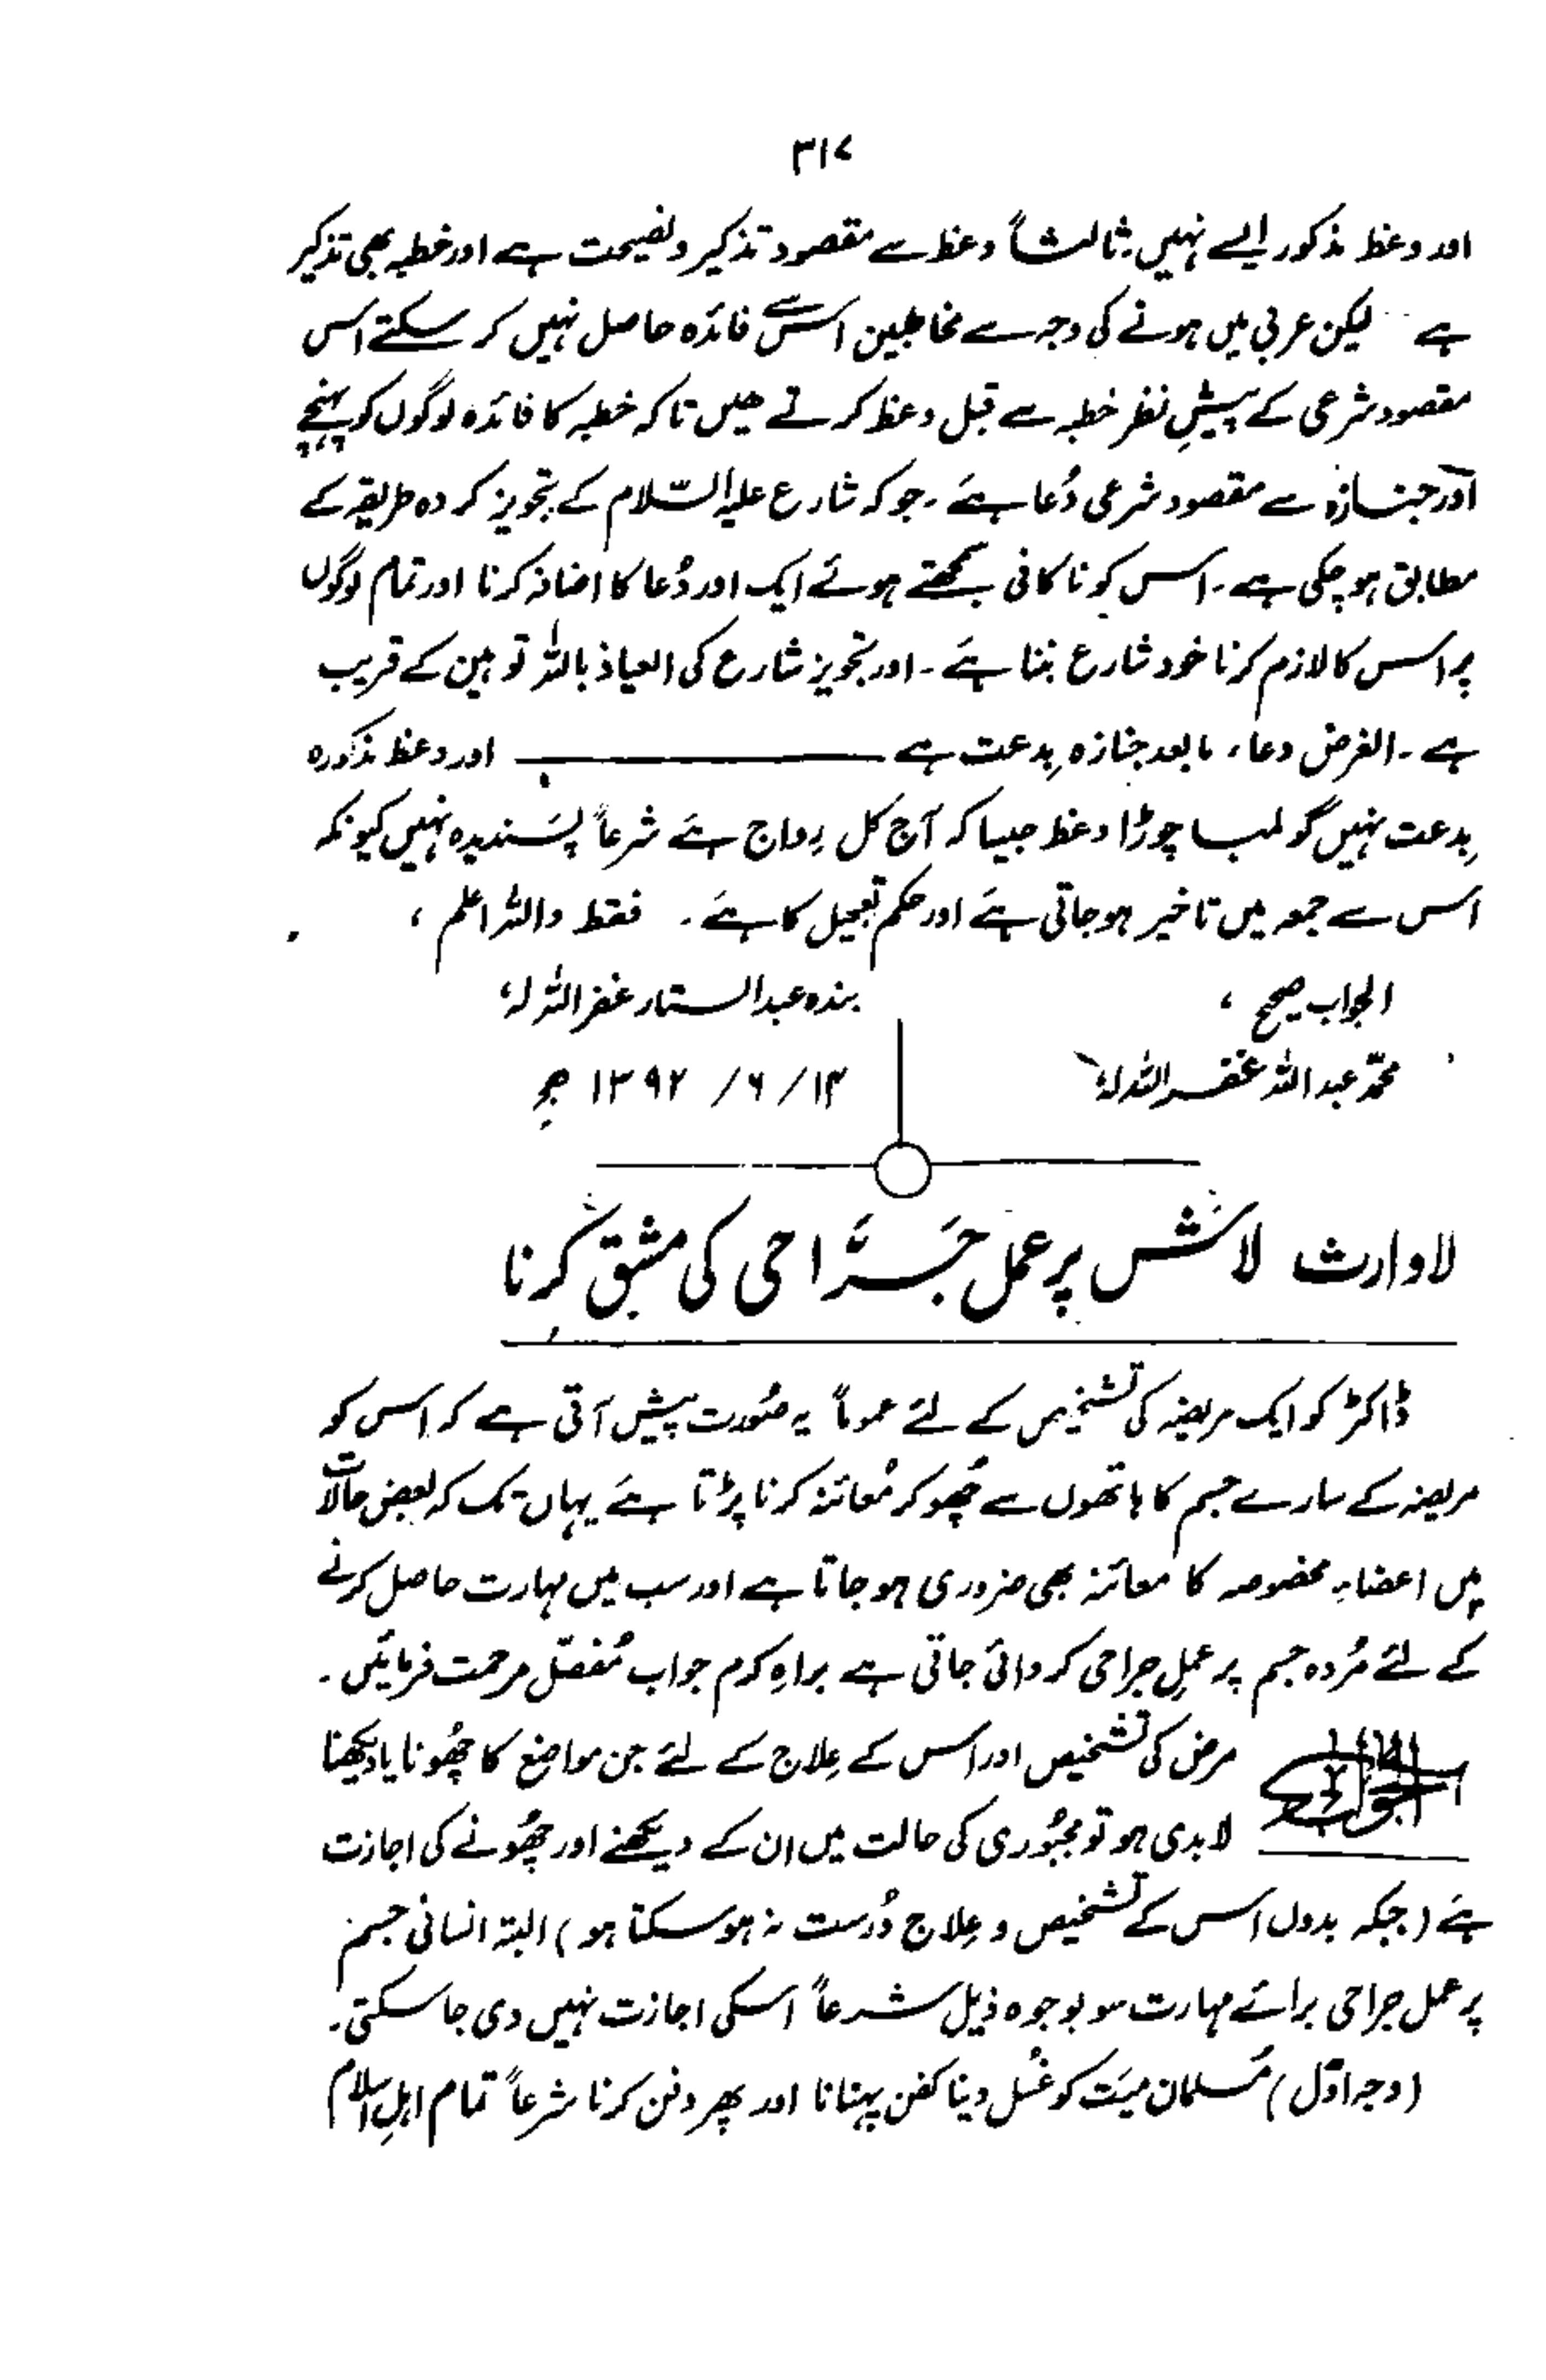 ۳۱۷
اور وعظ مذکور ایسے نہیں۔ ثالثاً وعظ سے مقصود تذکیر و نصیحت ہے اور خطبہ بھی تذکیر
ہے لیکن عربی میں ہونے کی وجہ سے مخاطبین اس سے فائدہ حاصل نہیں کر سکتے اس
مقصود شرعی کے پیشِ نظر خطبہ سے قبل وعظ کرتے ہیں تاکہ خطبہ کا فائدہ لوگوں کو پہنچے
اور جنازہ سے مقصود شرعی دُعا ہے۔ جو کہ شارع علیہ السّلام کے تجویز کردہ طریقہ کے
مطابق ہو چکی ہے۔ اس کو ناکافی سمجھتے ہوئے ایک اور دُعا کا اضافہ کرنا اور تمام لوگوں
پر اس کا لازم کرنا خود شارع بننا ہے۔ اور تجویز شارع کی العیاذ باللہ توہین کے قریب
ہے۔ الغرض دعاء مابعد جنازہ بِدعت ہے ـــــــــ اور وعظ مذکورہ
بِدعت نہیں گو لمبا چوڑا وعظ جیسا کہ آج کل رِواج ہے شرعاً پسَندیدہ نہیں کیونکہ
اس سے جمعہ میں تاخیر ہو جاتی ہے اور حکم تعجیل کا ہے۔ فقط واللہ اعلم ،
الجواب صحیح ، بندہ عبدالستار غفر اللہ لہٗ
محمّد عبداللہ غفر اللہ لہٗ ۱۳/ ۶/ ۱۳۹۲ ھ
لاوارث لاش پر عمل جَرَّاحی کی مشق کرنا
ڈاکٹر کو ایک مریضہ کی تشخیص کے لئے عموماً یہ صُورت پیش آتی ہے کہ اس کو
مریضہ کے سارے جسم کا ہاتھوں سے چُھو کر مُعائنہ کرنا پڑتا ہے یہاں تک کہ بعض حالات
میں اعضاءِ مخصوصہ کا معائنہ بھی ضروری ہو جاتا ہے اور سب میں مہارت حاصل کرنے
کے لئے مُردہ جسم پر عملِ جراحی کروائی جاتی ہے براہِ کرم جواب مُفصّل مرحمت فرمائیں۔
الجواب مرض کی تشخیص اور اس کے عِلاج کے لئے جن مواضع کا چُھونا یا دیکھنا
لابدی ہو تو مجبُوری کی حالت میں ان کے دیکھنے اور چُھونے کی اجازت
ہے (جبکہ بدوں اس کے تشخیص و عِلاج دُرست نہ ہو سکتا ہو) البتہ انسانی جسم
پر عمل جراحی برائے مہارت سو بوجوہ ذیل شرعاً اسکی اجازت نہیں دی جا سکتی۔
(وجہ اوّل) مُسلمان میّت کو غُسل دینا کفن پہنانا اور پھر دفن کرنا شرعاً تمام اہلِ اسلام